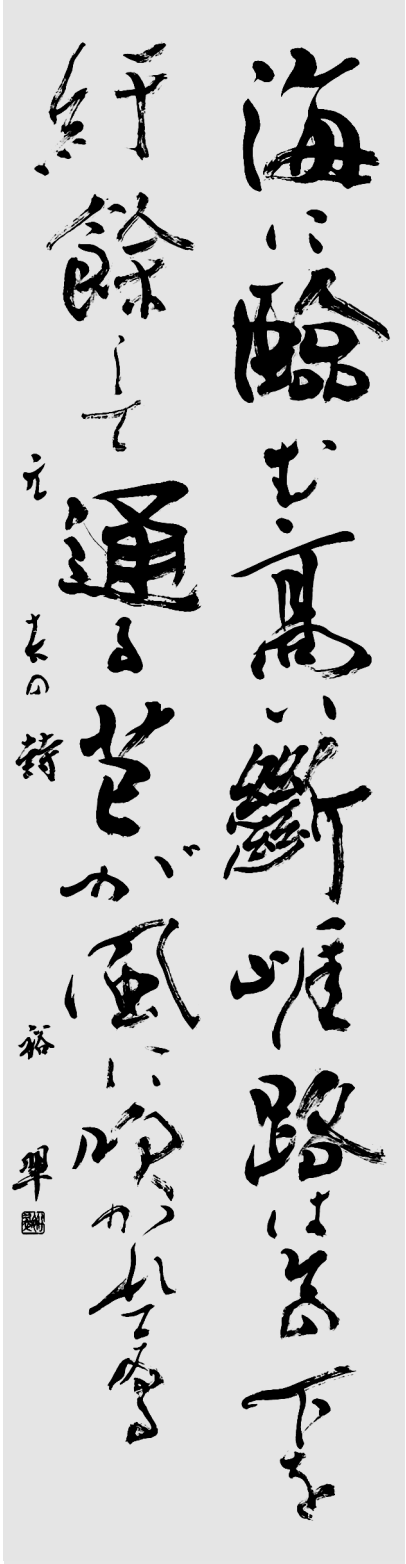 海に臨む高い斷崖路は其の下を
紆餘して通る芒が風に吹かれて居る
元の詩
裕翠